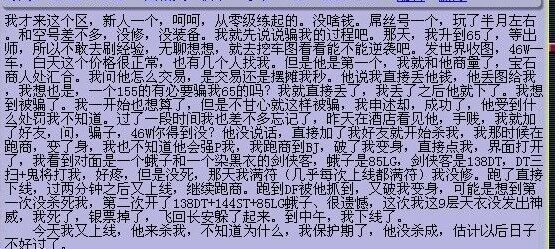 我才来这个区，新人一个，呵呵，从零级练起的。没啥钱。屌丝号一个，玩了半月左
右。和空号差不多，没修，没装备。我就先说说骗我的过程吧。那天，我升到65了，等出
师，所以不敢去刷经验，无聊想想，就去挖车图看看能不能逆袭吧。发世界收图，46W一
车，白天这个价格很正常，也有几个人找我。但是他是第一个，我就和他商量了，宝石
商人处汇合。我问他怎么交易，是交易还是摆摊我秒。他说我直接丢他钱，他丢图给我
。我想也是，一个155的有必要骗我65的吗？我就直接丢了，我丢了之后他就下了。我想
到被骗了。我一开始也想算了，但是不甘心就这样被骗，我申述却，成功了，他受到什
么处罚我不知道。过了一段时间我也差不多忘记了，昨天在酒店看见他，手贱，我就加
了好友，问，骗子，46W你得到没？他没说话，直接加了我好友就开始杀我，我那时候在
跑商，变了身，我也不知道他会强P我，我跑商到BJ，破了我变身，直接点我，界面打开
了，我看到对面是一个蛾子和一个染黑衣的剑侠客，蛾子是85LG，剑侠客是138DT，DT三
扫+鬼将打我，好疼，但是没死，那天我满符（几乎每次上线都满符）我没修。跑了直接
下线，过两分钟之后又上线，继续跑商。跑到DF被他抓到，又破我变身，可能是想到第
一次没杀死我，第二次开了138DT+144ST+85LG蛾子、很遗憾，这次我这9层天衣没发出神
威，我死了，银票掉了，飞回长安躲了起来。到中午，我下线了。
今天我又上线，他来杀我，不知道为什么，我保护期了，他没杀成，估计以后日子
不好过了。